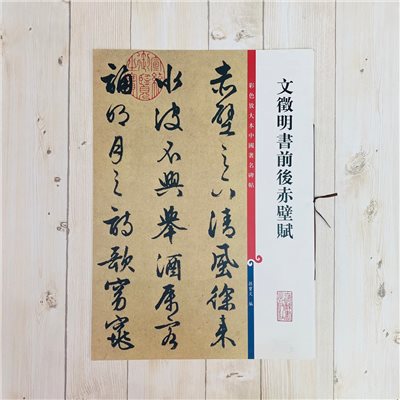 文徵明書前後赤壁賦
彩色放大本中國著名碑帖
孫寶文 編
赤壁之下清風徐來
水波不興舉酒屬客
誦明月之詩歌窈窕